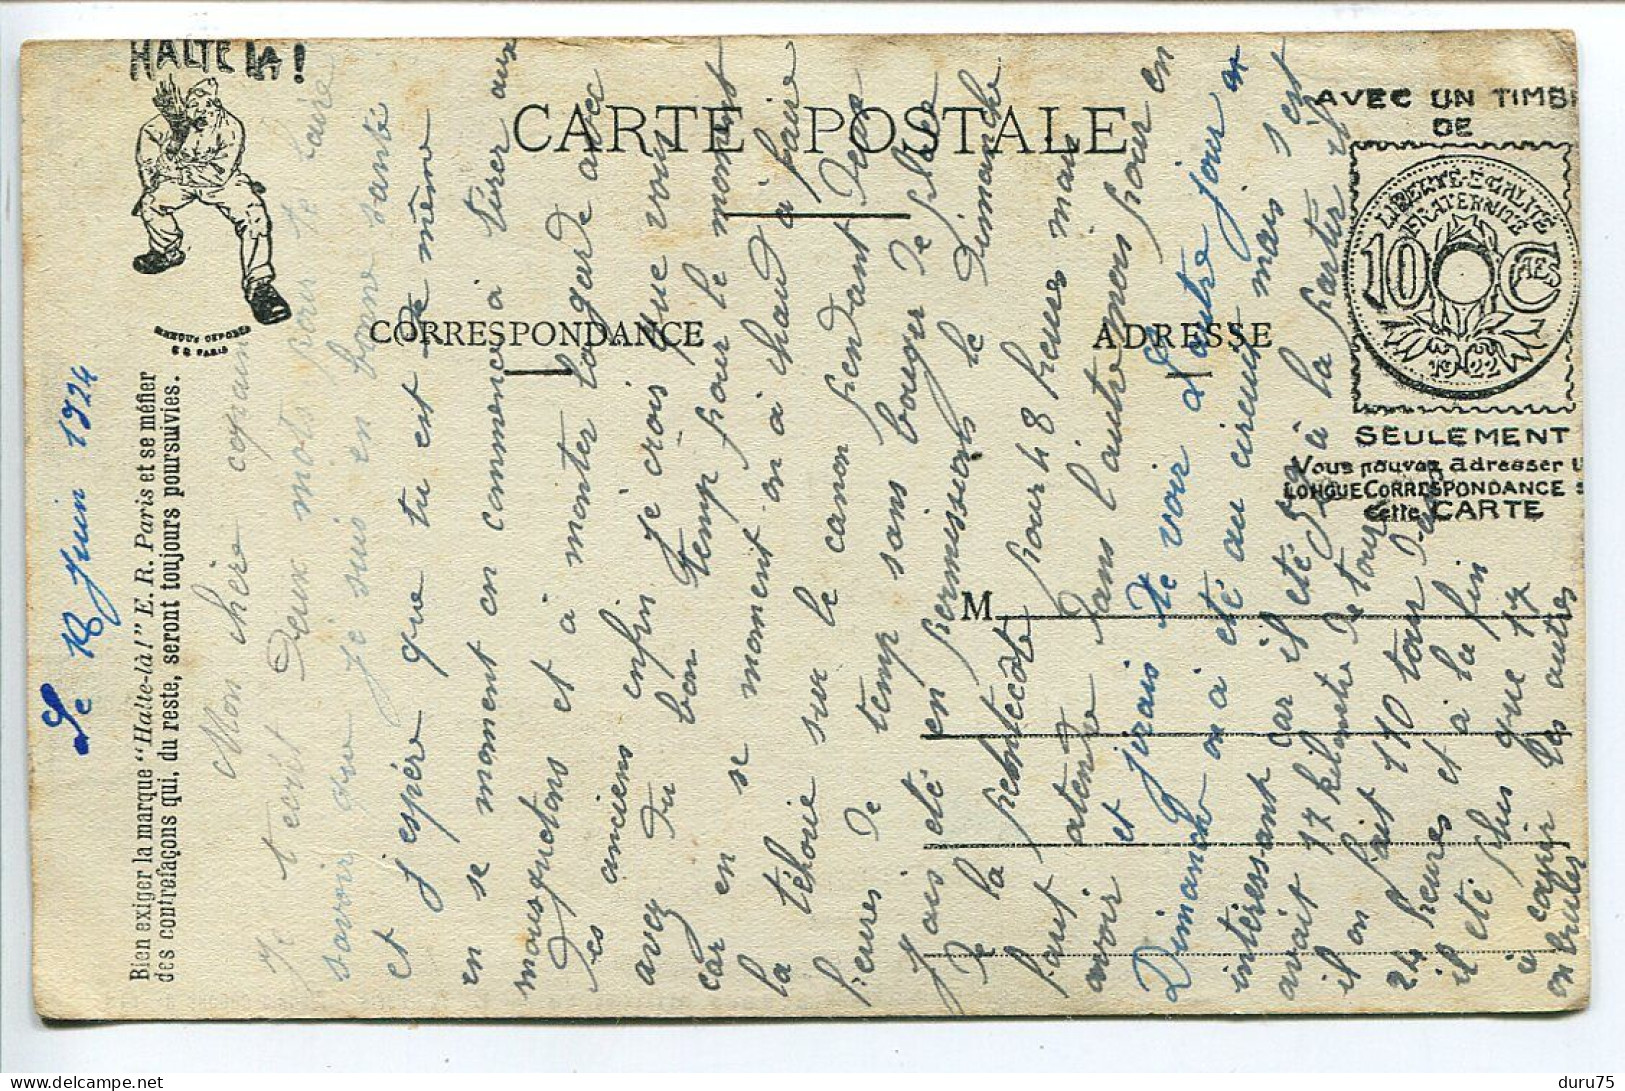 HALTE LA !
MARQUE DEPOSEE
E R PARIS
Bien exiger la marque "Halte-là!" E. R. Paris et se méfier
des contrefaçons qui, du reste, seront toujours poursuivies.
CARTE POSTALE
CORRESPONDANCE
ADRESSE
M
AVEC UN TIMB
DE
LIBERTE·EGALITE
FRATERNITE
10 CMES
1922
SEULEMENT
Vous pouvez adresser U
LONGUE CORRESPONDANCE
cette CARTE
Le 18 Juin 1924
Mon chère copain
Je t'ecrit deux mots pour te faire
savoir que je suis en bonne santé
et j'espère que tu est de même
en se moment on commence à tirer aux
mousquetons et à monter la garde avec
les anciens enfin je crois que vous
avez du bon temp pour le moment
car en se moment on à chaud à faire
la théorie sur le canon pendant des
heures de temp sans bouger de place
J'ais eté en permissions le dimanche
de la pentecôte pour 48 heures mais
faut atendre dans l'autre mois pour en
avoir et j'irais te voir L'autre jour
Dimanche on à eté au circuit mais s'est
intéressant car il eté
avait 17 kilometre de tour à la partir
il on fait 110 tour
24 heures et à la fin
il eté plus que 17
les autres
on brulés